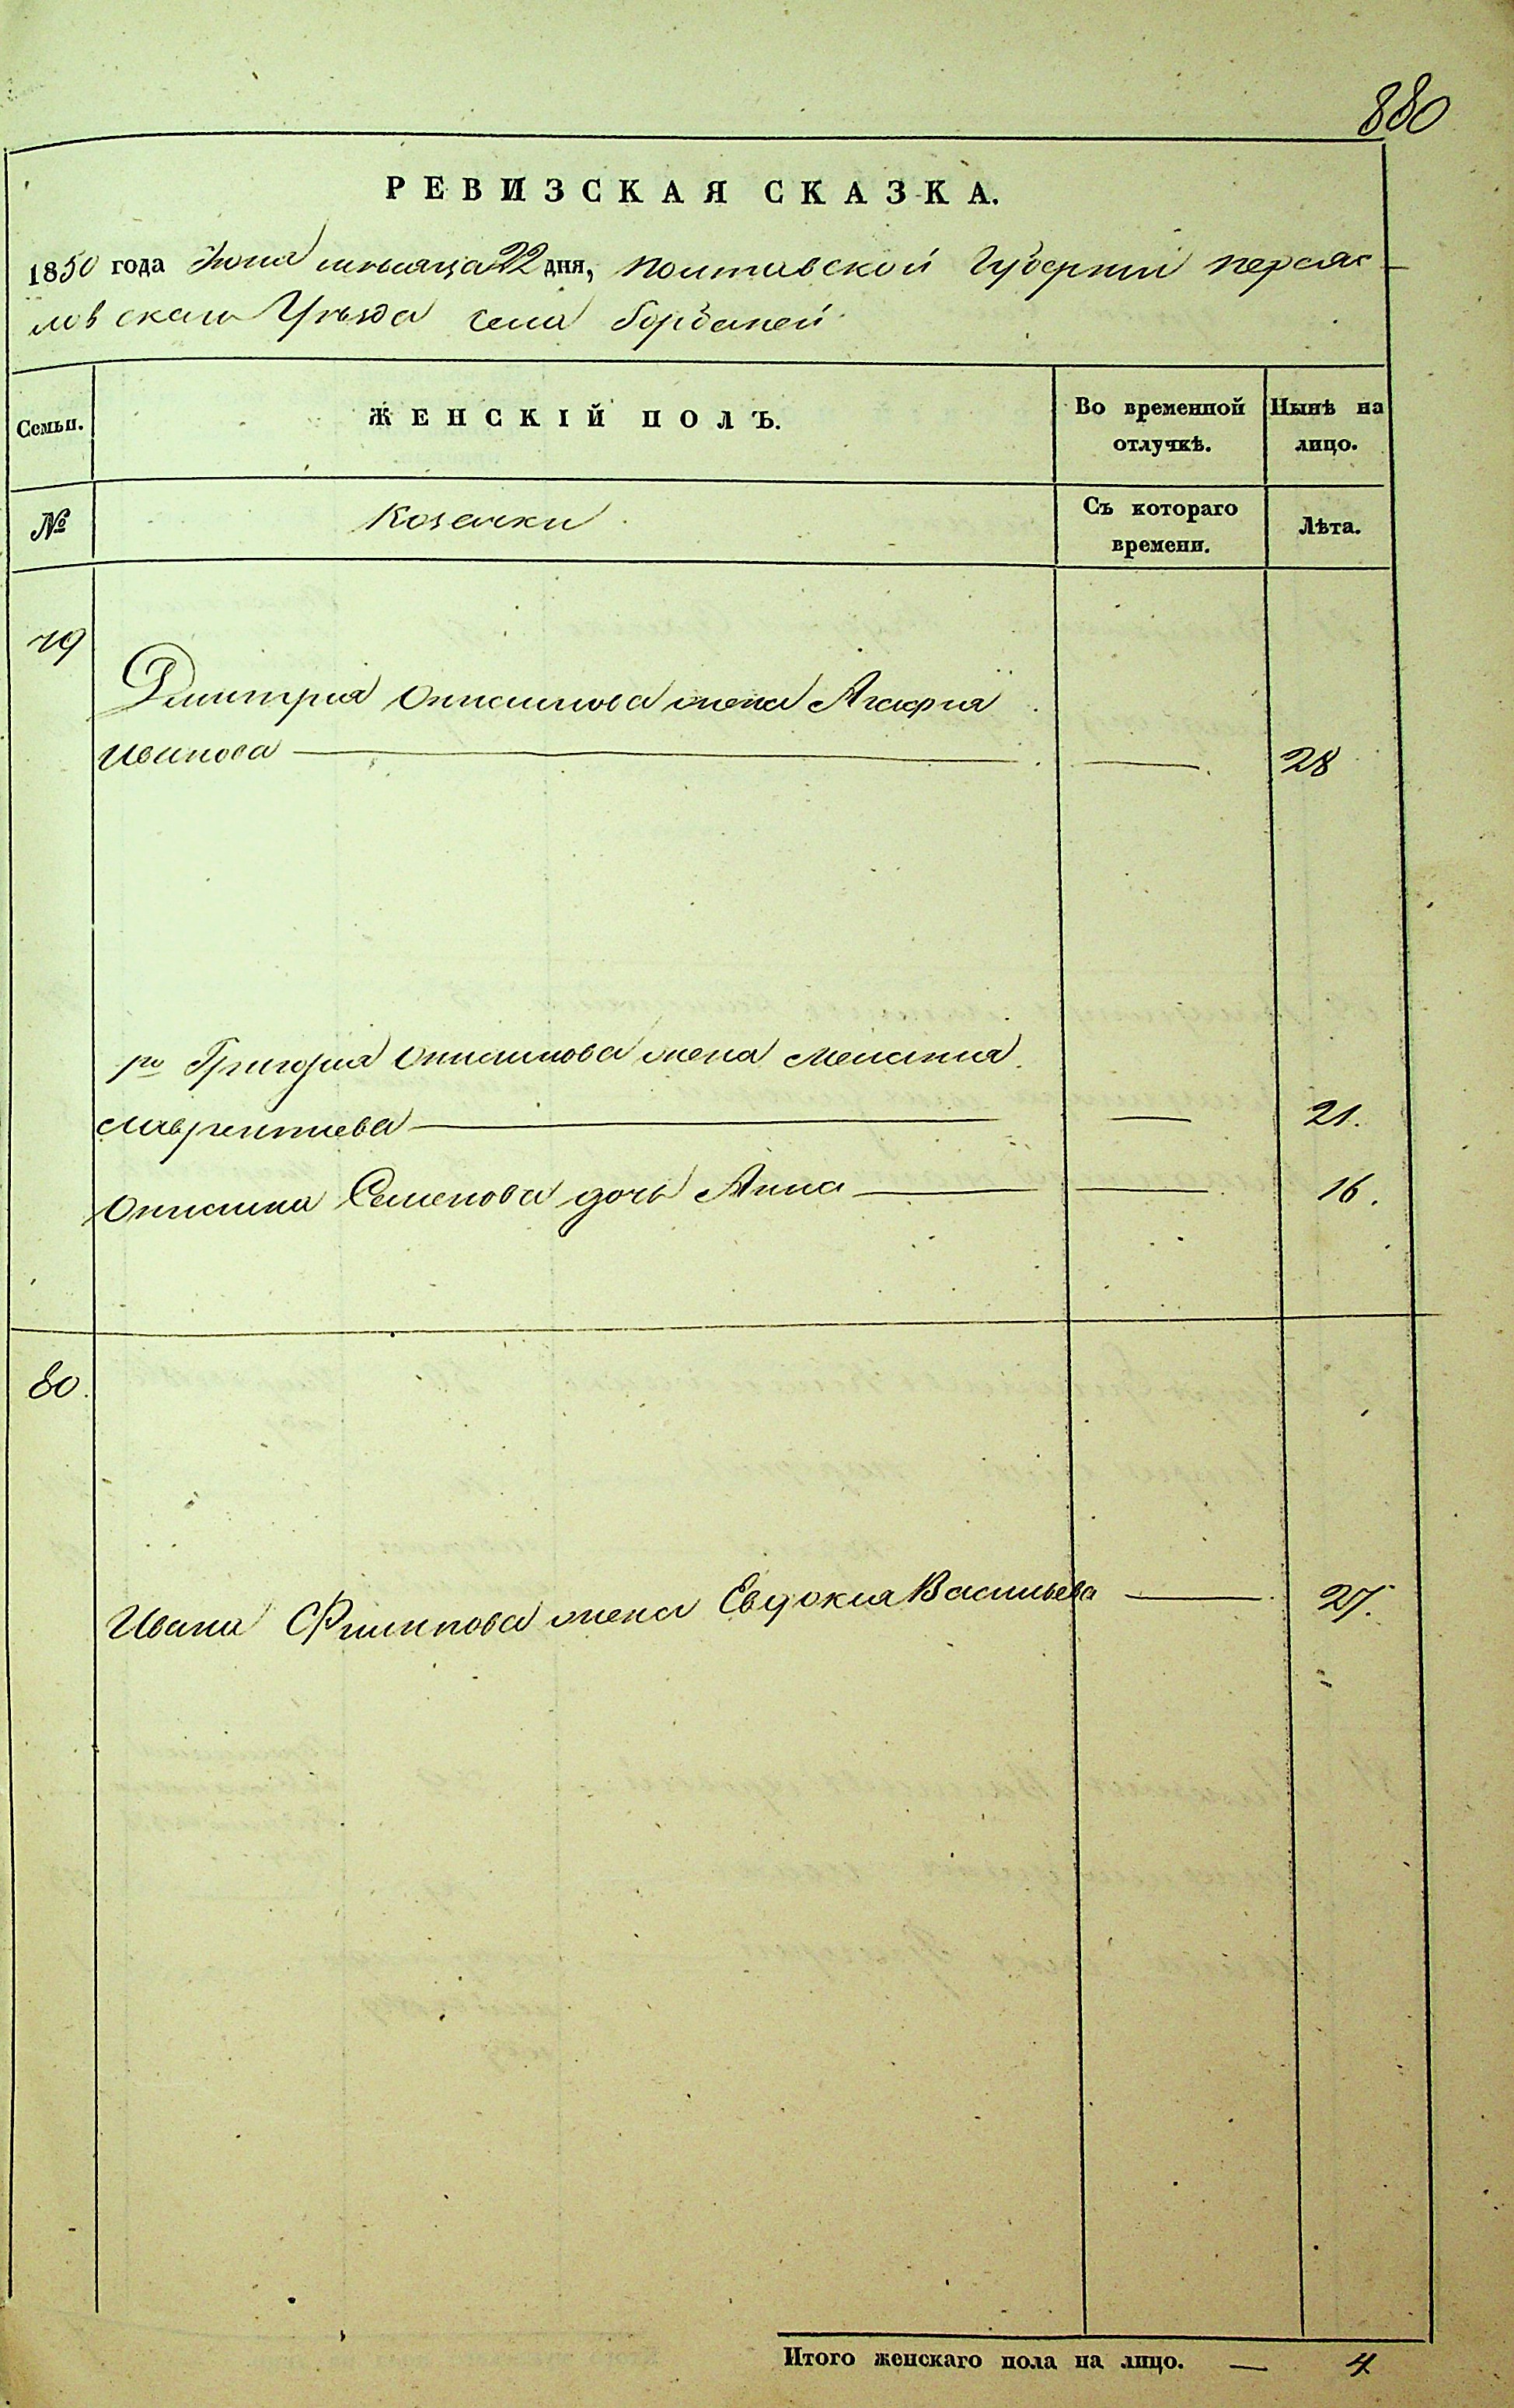 880
РЕВИЗСКАЯ СКАЗКА.
1850 года Июня мѣсяца 22 дня, Полтавской Губерніи Переяс-
ловскаго Уѣзда села Борбаней
Семьи.
ЖЕНСКІЙ ПОЛЪ.
Во временной
отлучкѣ.
Нынѣ на
лицо.
№
Козачки
Съ котораго
времени.
Лѣта.
79
Дмитрія Онисимова жена Агафія
Иванова — — 28
Григорія Онисимова жена Меланія
Лаврентіева — — 21.
Онисима Семенова дочь Анна — — 16.
80.
Ивана Филипова жена Евдокия Васильева — 27.
Итого женскаго пола на лицо. — 4